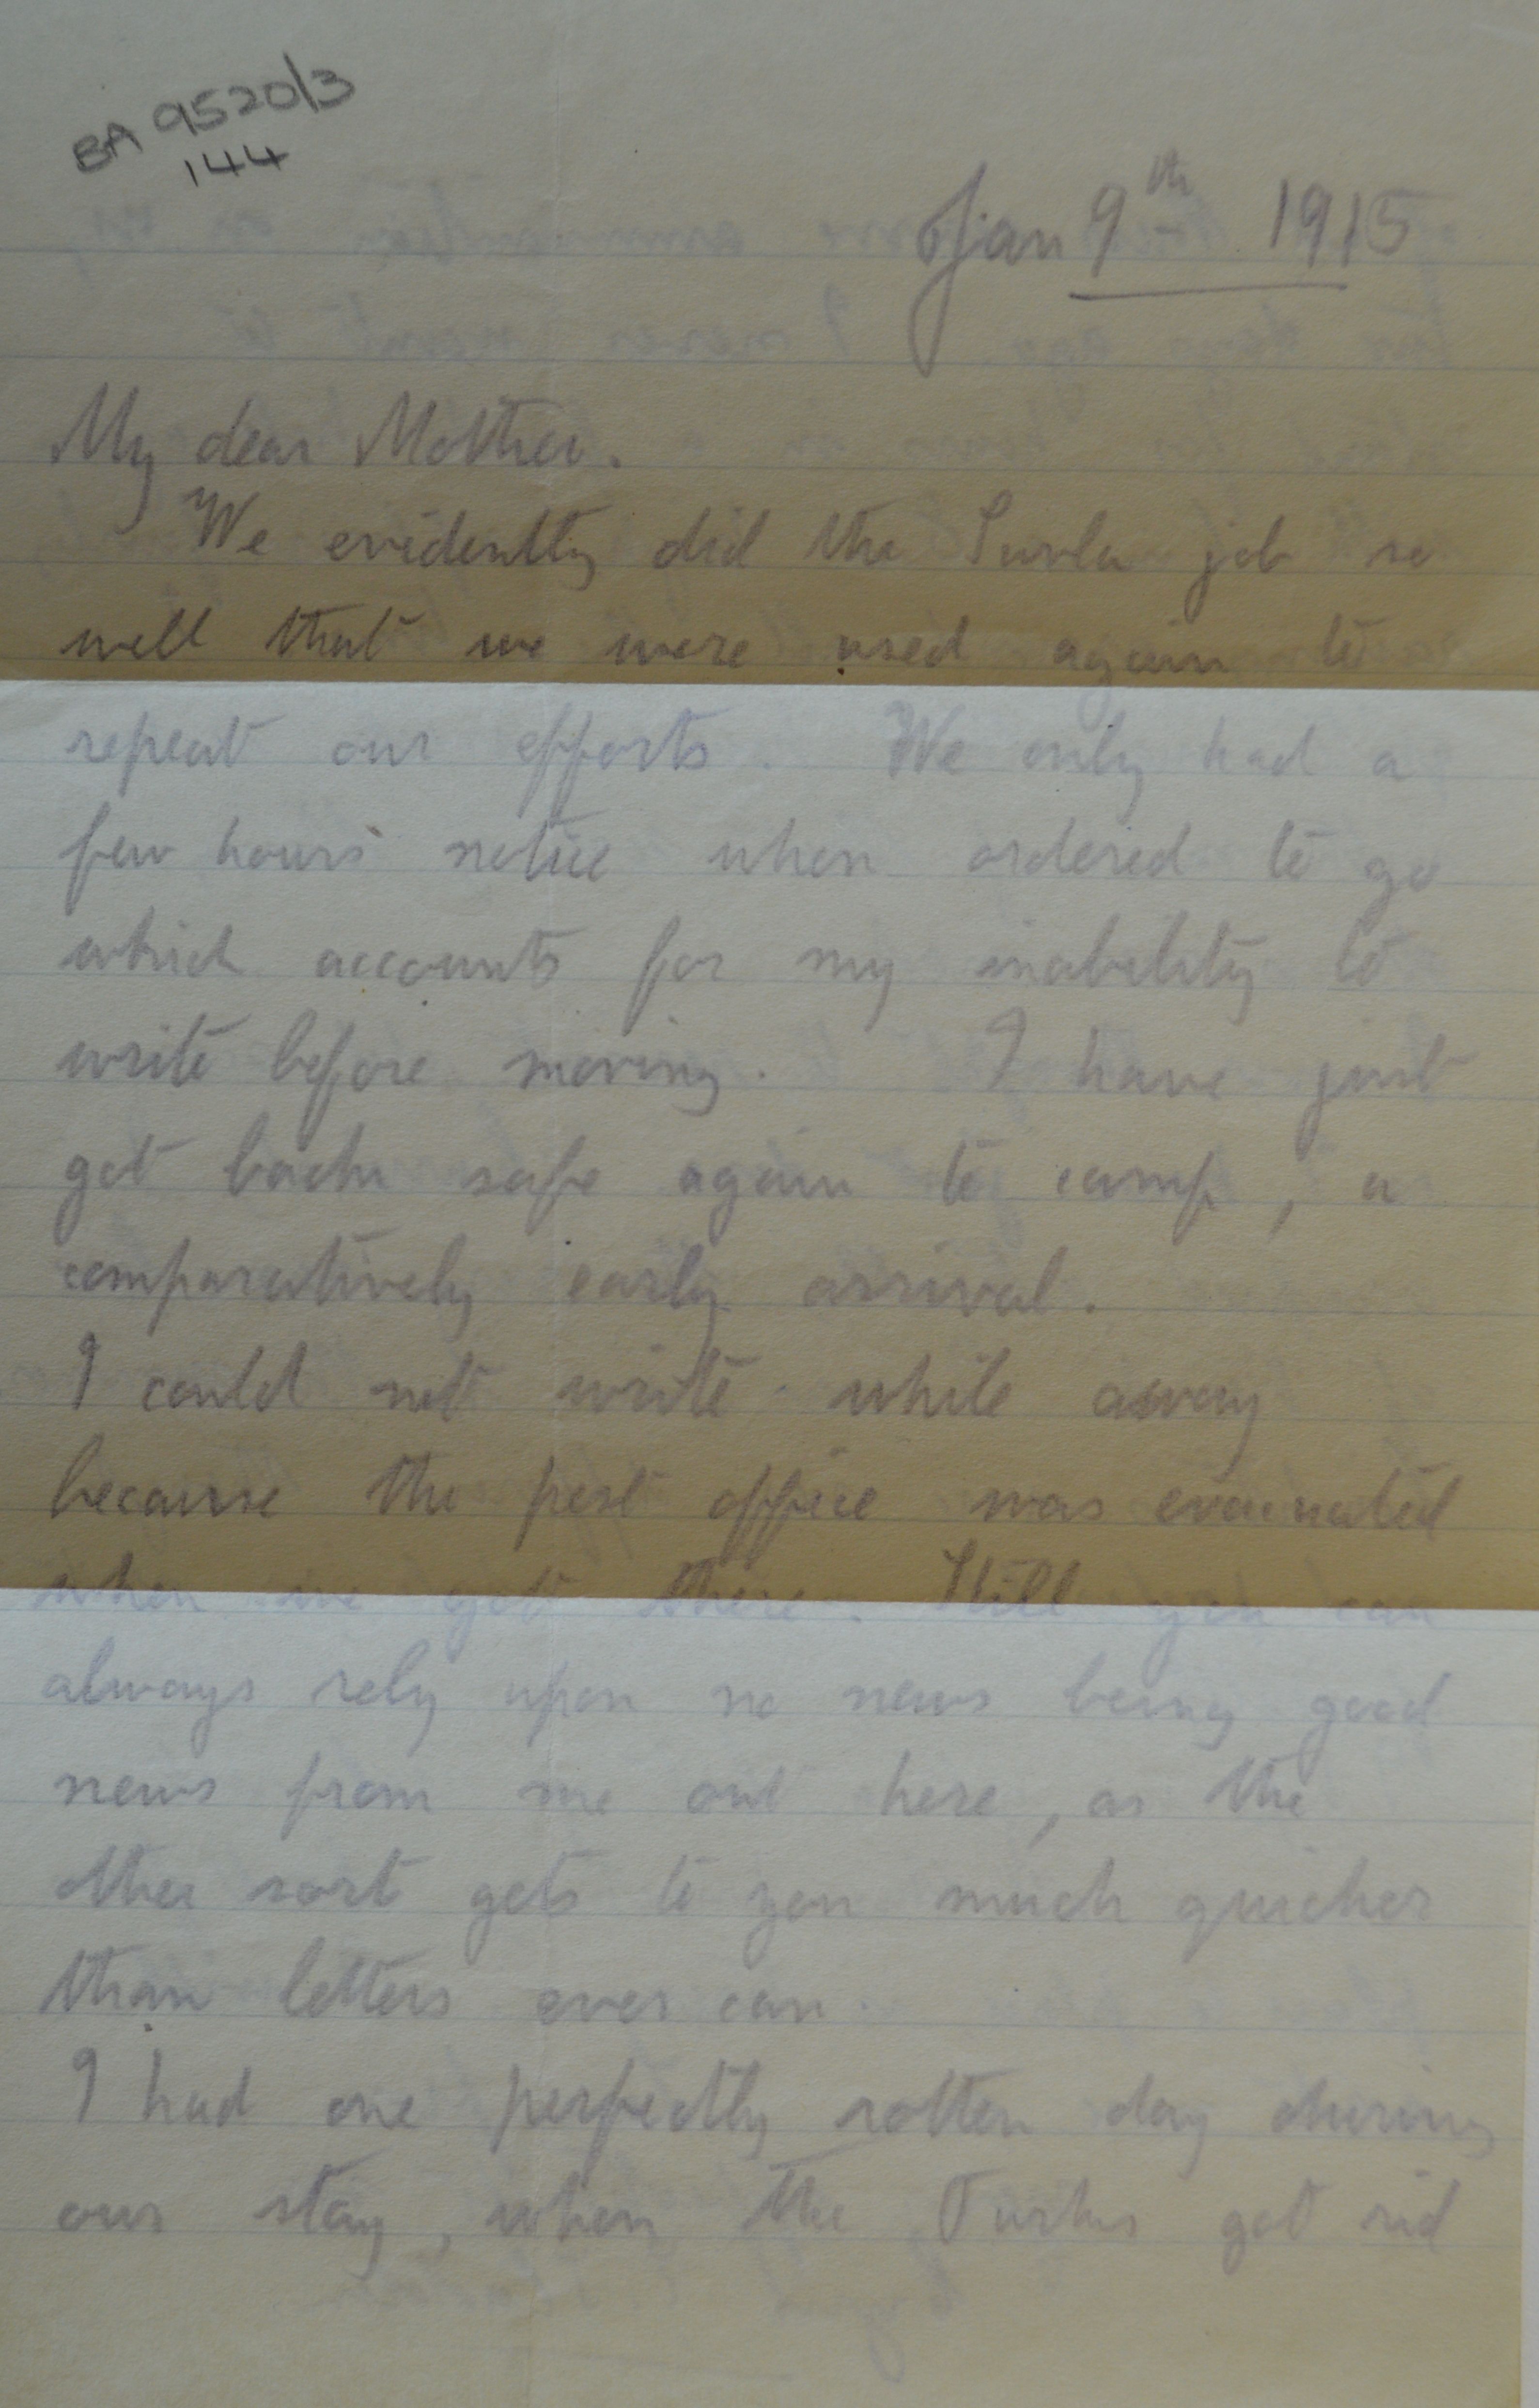 BA 9520/3
144
Jan 9th 1915
My dear Mother.
We evidently did the Suvla job so
well that we were used again to
repeat our efforts. We only had a
few hours notice when ordered to go
which accounts for my inability to
write before moving. I have just
got back safe again to camp, a
comparatively early arrival.
I could not write while away
because the post office was evacuated
when we got there. Still you can
always rely upon no news being good
news from me out here, as the
other sort gets to you much quicker
than letters ever can.
I had one perfectly rotten day during
our stay, when the Turks got rid